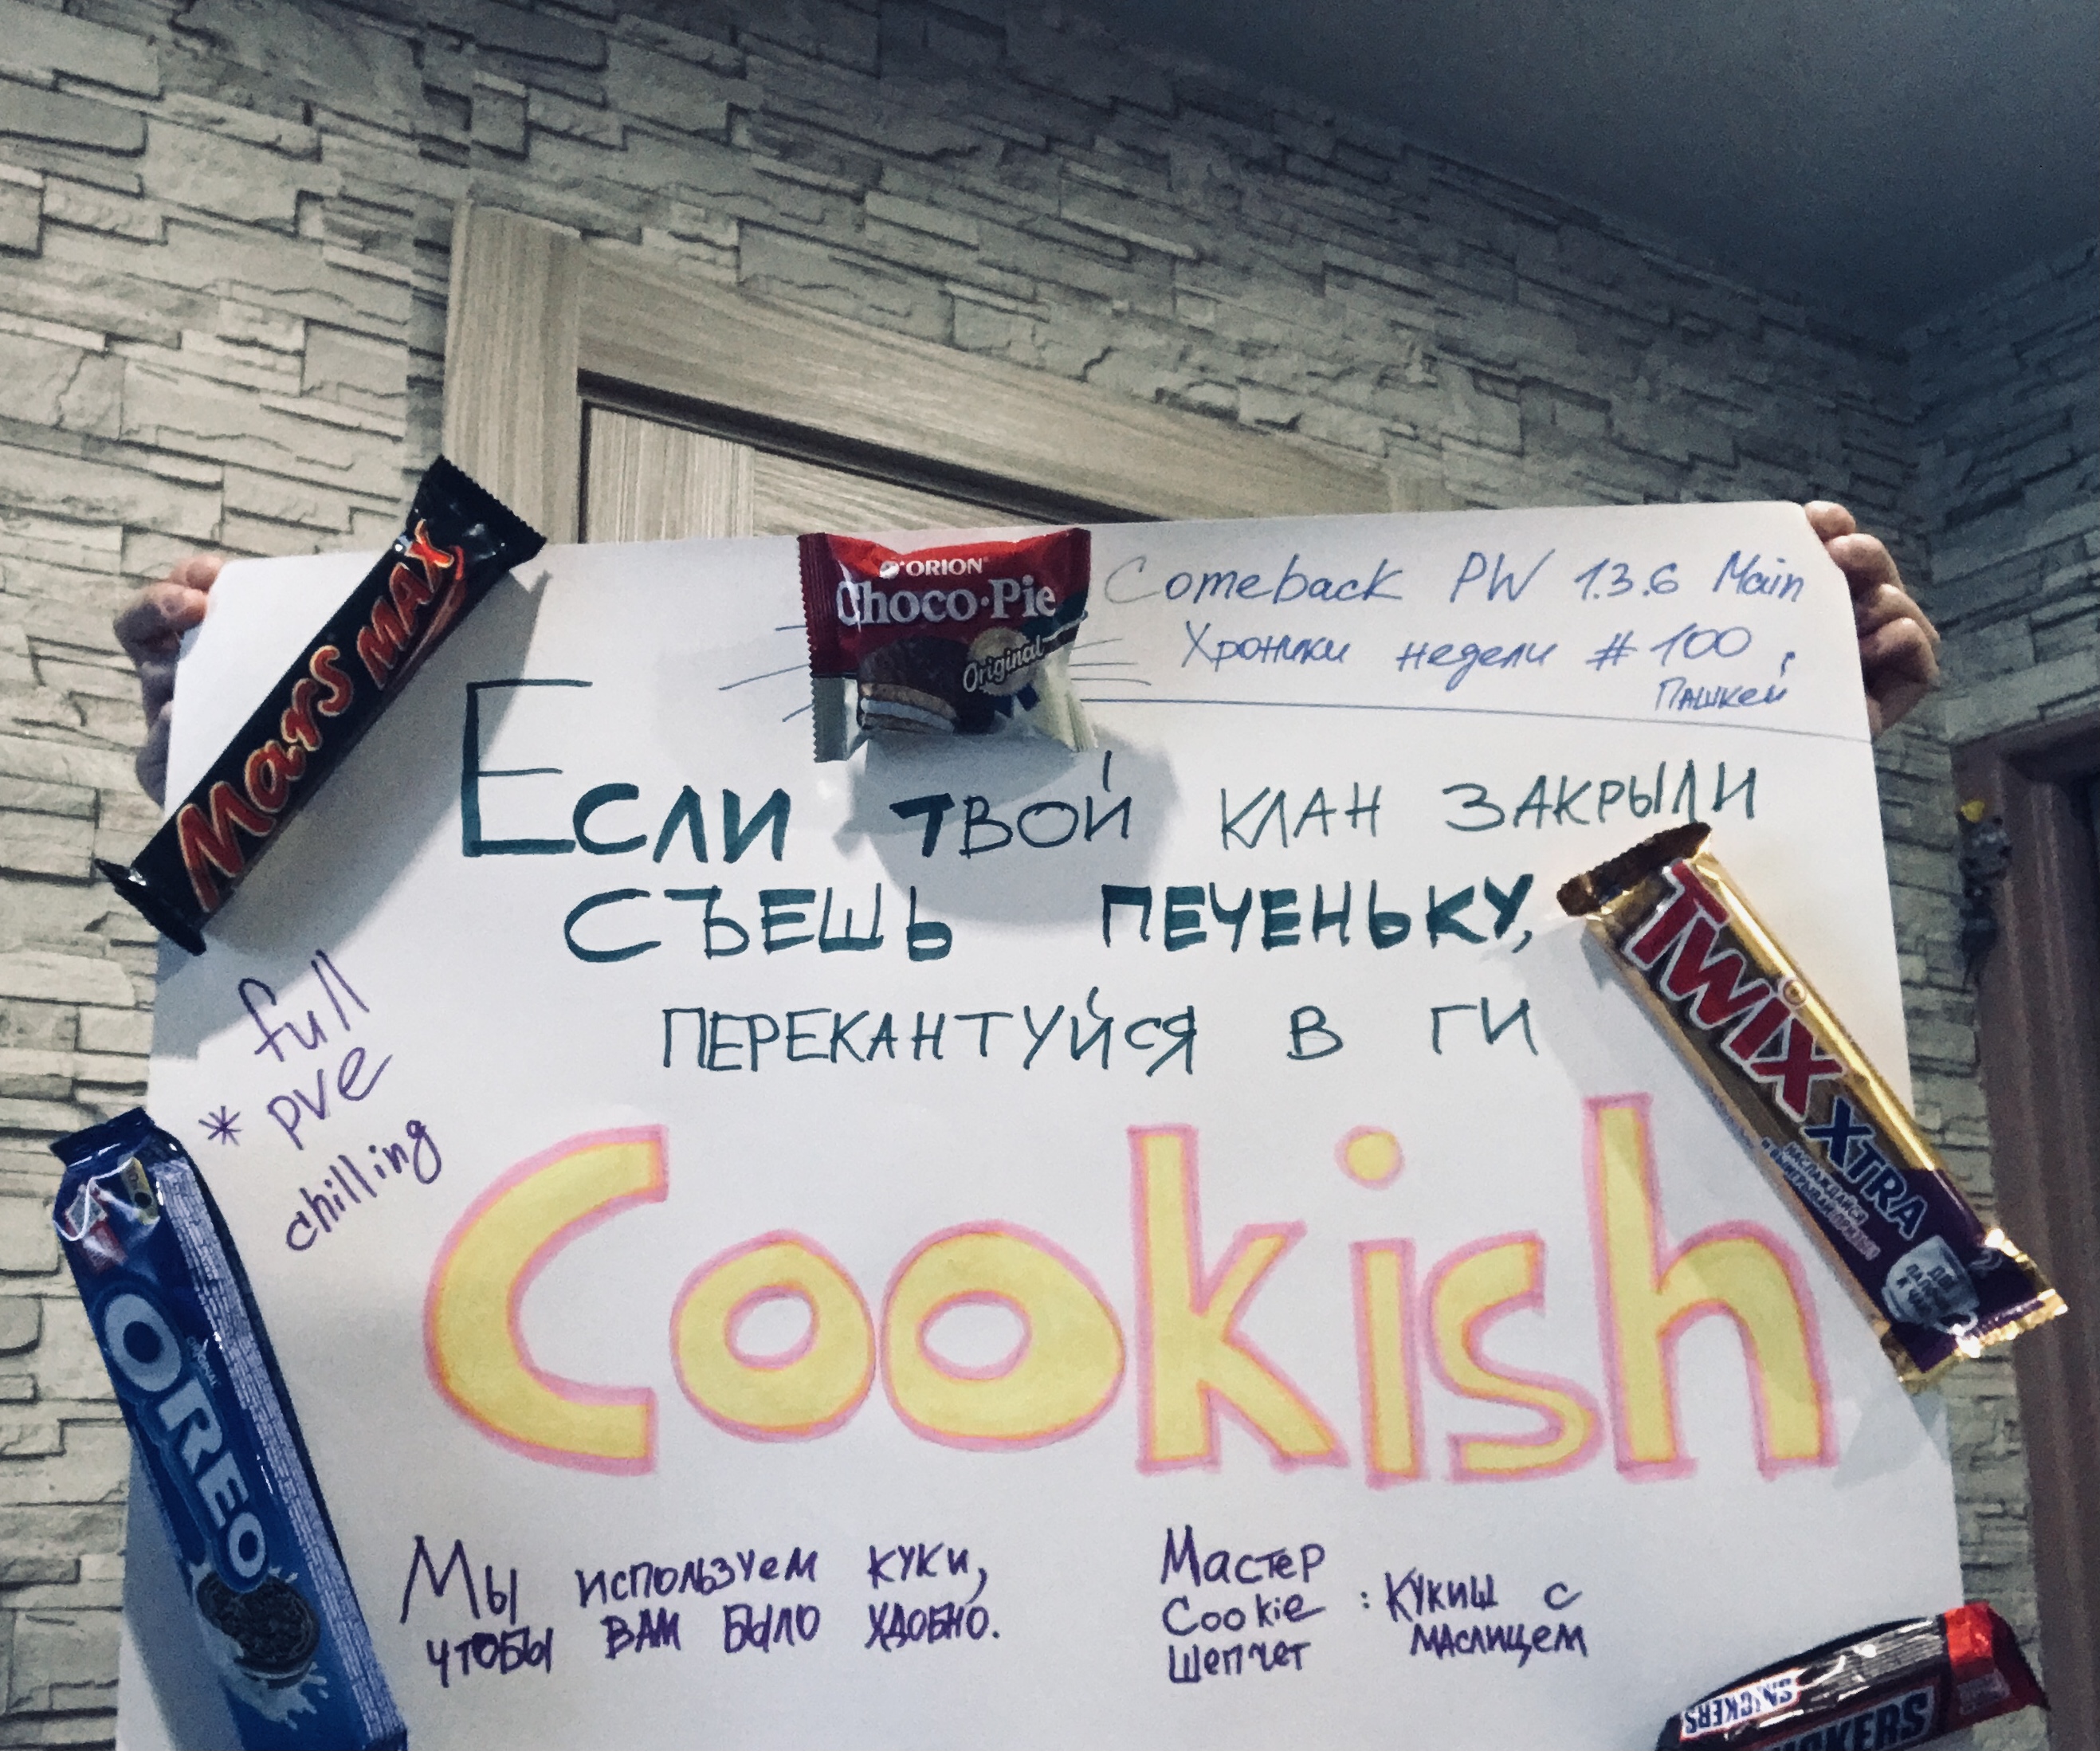 ORION
Choco·Pie
Original
Comeback PW 1.3.6 Main
Хроники недели #100,
Пашкей
Mars MAX
Если твой клан закрыли
съешь печеньку,
перекантуйся в ГИ
TWIX
XTRA
full
* pve
chilling
Cookish
OREO
ORIGINAL
Мы используем куки,
чтобы вам было удобно.
Мастер
Cookie : кукиш с
шепчет маслищем
SNICKERS
SNICKERS